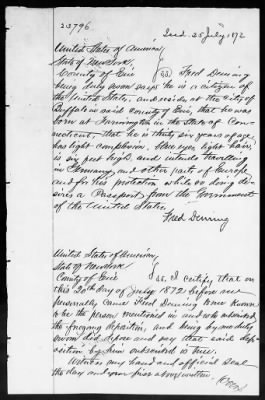 23796
Issd. 23 July 1872
United States of America,
State of New York,
County of Erie
ss Fred Deming
being duly sworn says he is a citizen of
the United States, and resides at the City of
Buffalo in said County of Erie, that he was
born at Farmington in the State of Con-
necticut, that he is thirty six years of age,
has light complexion, blue eyes, light hair,
is six feet high, and intends travelling
in Germany, and other parts of Europe
and for his protection while so doing de-
sires a Passport from the Government
of the United States.
Fred Deming
United States of America,
State of New York
County of Erie
ss. I certify that on
this 20th day of July 1872 before me
personally came Fred Deming to me known
to be the person mentioned in and who subscribed
the foregoing deposition, and being by me duly
sworn did depose and say that said dep-
osition by him subscribed is true.
Witness my hand and official Seal
the day and year first above written